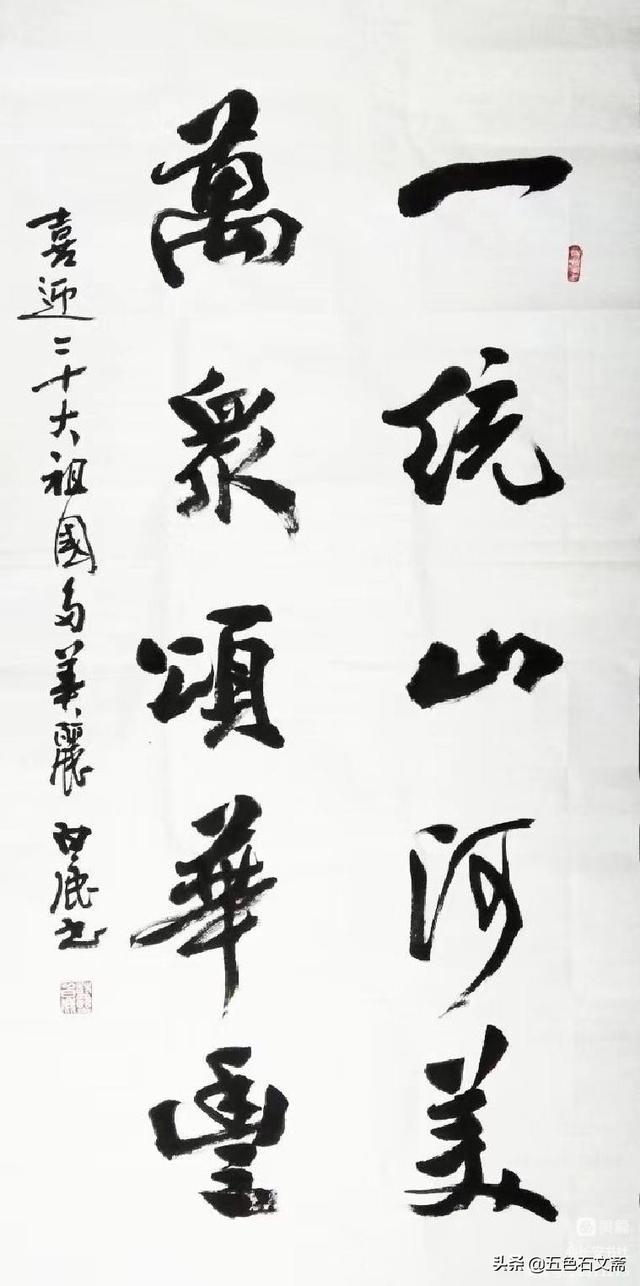 一統山河美
萬衆頌華
喜迎二十大祖國多美麗 书
美篇
头条 @五色石文斋